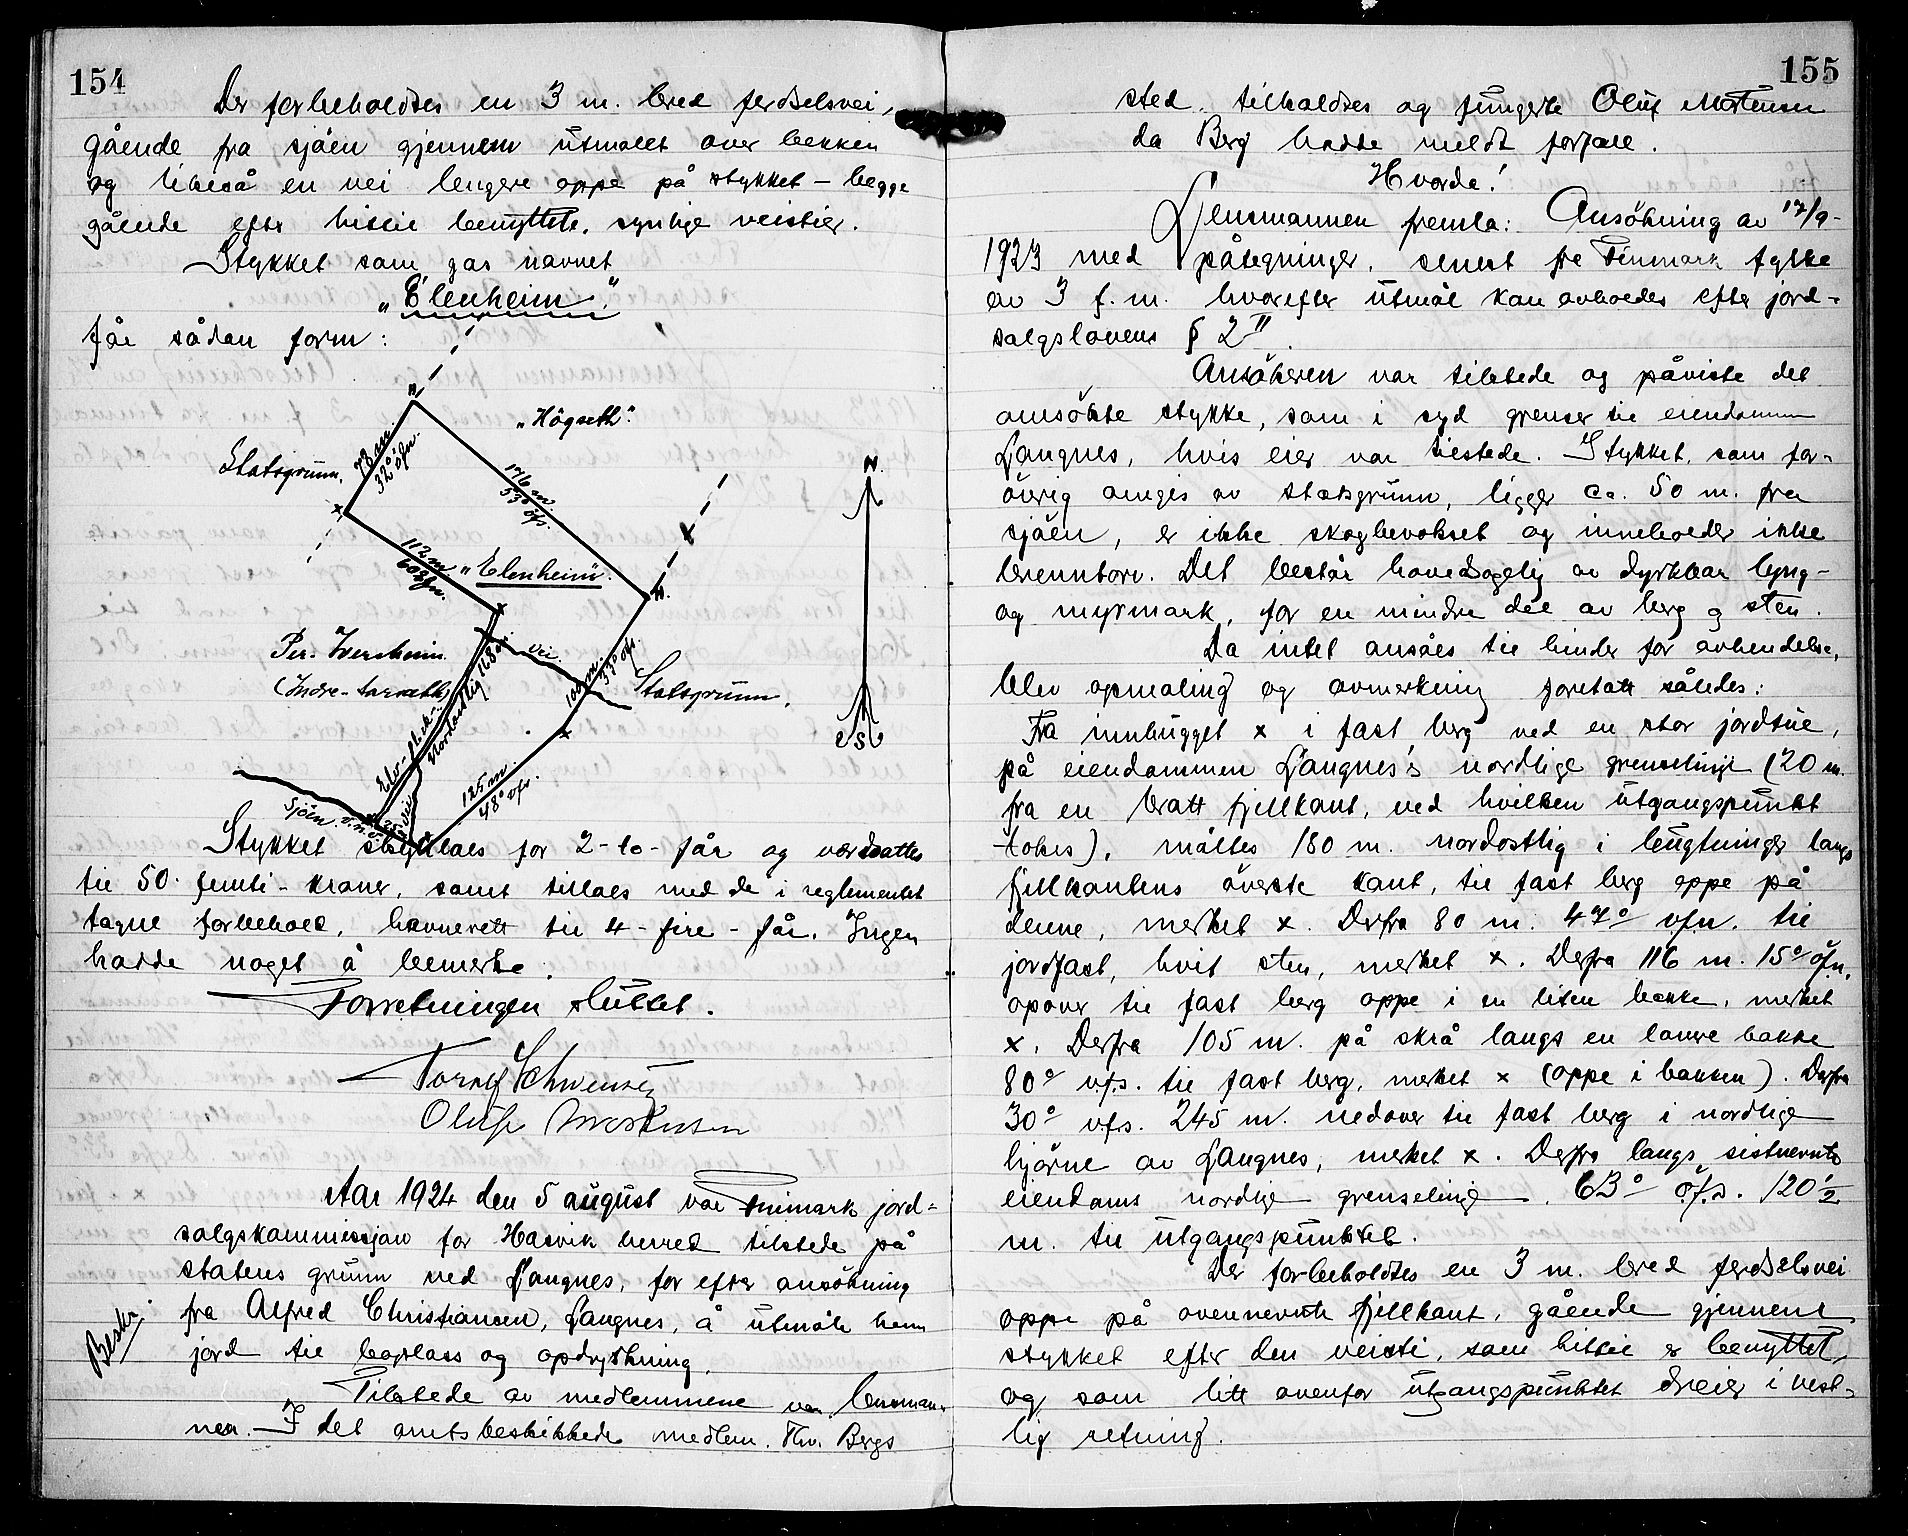 154
Der forbeholdtes en 3 m. bred ferdselsvei,
gående fra sjöen gjennem utmålet over bekken
og likeså en vei lengere oppe på stykket – begge
gående efter hittil benyttete, synlige veistier.
Stykket som gas navnet
„Elenheim”.
får sådan form:
„Högseth”.
Statsgrunn.
78 m.
32° öfn.
176 m.
53° öfs.
N.
112 m
60° öfn.
„Elenheim”.
Per-Iversheim.
(Indre-
vei.
Statsgrunn.
Nordostlig 168 m.
109 m.
33° vfs.
S
125 m.
48° vfs.
Sjöen.
vei
Stykket skyldlaes for 2-to-får og verdsattes
til 50. femti-kroner, samt tillaes med de i reglementet
tagne forbehold, havnerett til 4-fire-får. Ingen
hadde noget å bemerke.
Forretningen sluttet.
Oluf Mortensen
Aar 1924 den 5 august var Finmark jord-
salgskommissjon for Hasvik herred tilstede på
statens grunn ved Langnes, for efter ansökning
fra Alfred Christiansen, Langnes, å utmåle ham
Beskr.
jord til boplass og opdyrkning.
Tilstede av medlemmene var lensman-
nen. I det amtsbeskikkede medlem. Thv. Bergs
155
sted. tilkaldtes og fungerte Oluf Mortensen
da Berg hadde meldt forfall.
Hvorda!
Lensmannen fremla: Ansökning av 17/9-
1923 med påtegninger, senest fra Finmark fylke
av 3 f.m. hvorefter utmål kan avholdes efter jord-
salgslovens § 2 II.
Ansökeren var tilstede og påviste det
ansökte stykke, som i syd grenser til eiendommen
Langnes, hvis eier var tilstede. Stykket, som for-
övrig omgis av statsgrunn, ligger ca. 50 m. fra
sjöen, er ikke skogbevokset og inneholder ikke
brenntorv. Det består hovedsagelig av dyrkbar lyng-
og myrmark, for en mindre del av berg og sten.
Da intet ansåes til hinder for avhendelse,
blev opmaling og avmerkning foretatt således:
Fra innhugget x i fast berg ved en stor jordtue,
på eiendommen Langnes's nordlige grenselinje (20 m.
fra en bratt fjellkant, ved hvilken utgangspunkt
tokes), måltes 180 m. nordostlig i lengtninger langs
fjellkantens överste kant, til fast berg oppe på
denne, merket x. Derfra 80 m. 47° vfn. til
jordfast, hvit sten, merket x. Derfra 116 m. 15° öfn.
opover til fast berg oppe i en liten bakke, merket
x. Derfra 105 m. på skrå langs en lavere bakke
80° vfs. til fast berg, merket x (oppe i bakken). Derfra
30° vfs. 245 m. nedover til fast berg i nordlige
hjörne av Langnes, merket x. Derfra langs sistnevnte
eiendoms nordlige grenselinje. 63° öfs. 120½
m. til utgangspunktet.
Der forbeholdtes en 3 m. bred ferdselsvei
oppe på ovennevnte fjellkant, gående gjennem
stykket efter den veisti, som hittil er benyttet,
og som litt ovenfor utgangspunktet dreier i vest-
lig retning.